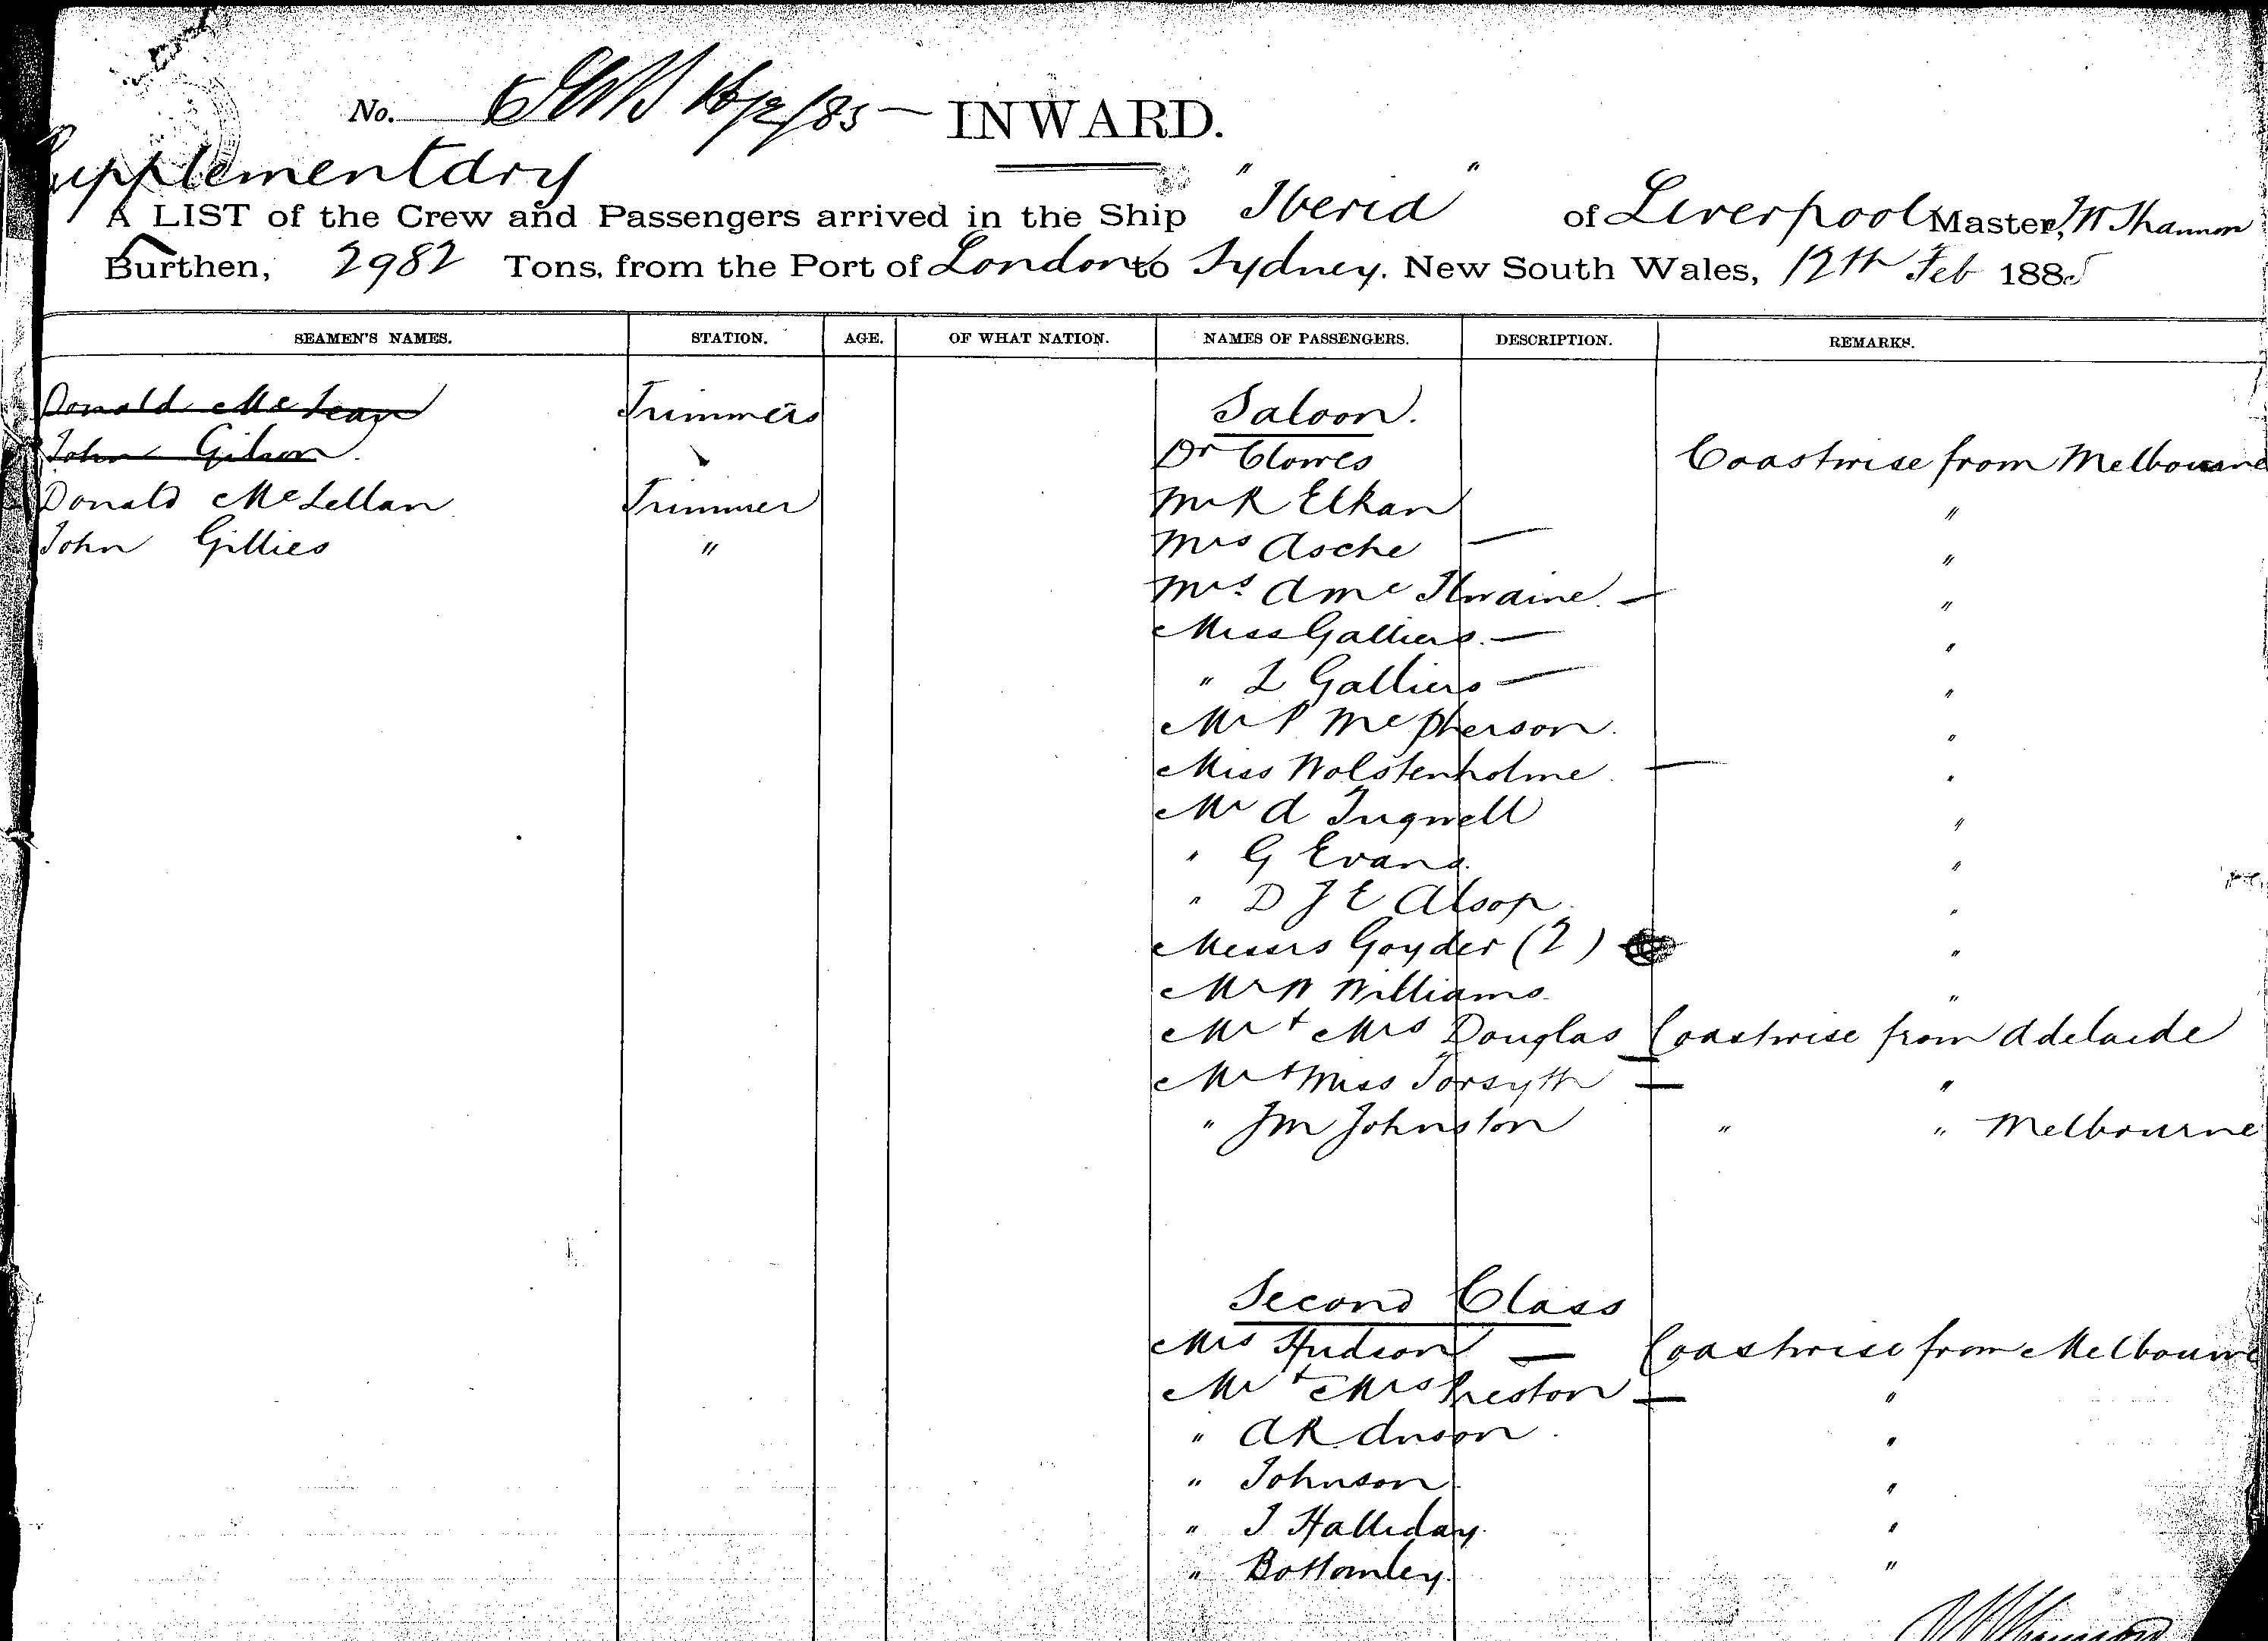 No. 16/2/85 — INWARD.
Supplementary
A LIST of the Crew and Passengers arrived in the Ship "Iberia" of Liverpool Master, W Shannon
Burthen, 2982 Tons, from the Port of London to Sydney, New South Wales, 12th Feb 1885
SEAMEN'S NAMES. STATION. AGE. OF WHAT NATION. NAMES OF PASSENGERS. DESCRIPTION. REMARKS.
Donald McLean Trimmers Saloon.
John Gilson Dr Clowes Coastwise from Melbourne
Donald McLellan Trimmer Mr R Elkan "
John Gillies " Mrs Asche — "
Mrs A Mc Ilwaine. — "
Miss Galliers. — "
" L Galliers — "
Mr P McPherson. "
Miss Wolstenholme. — "
Mr A Tugwell "
" G Evans. "
" D J E Alsop. "
Messrs Goyder (2) "
Mr W Williams. "
Mr + Mrs Douglas Coastwise from Adelaide
Mr + Miss Forsyth — "
" J M Johnston " " Melbourne
Second Class
Mrs Hudson — Coastwise from Melbourne
Mr + Mrs Preston — "
" A R "
" Johnson "
" J Halliday. "
" Bottomley. "